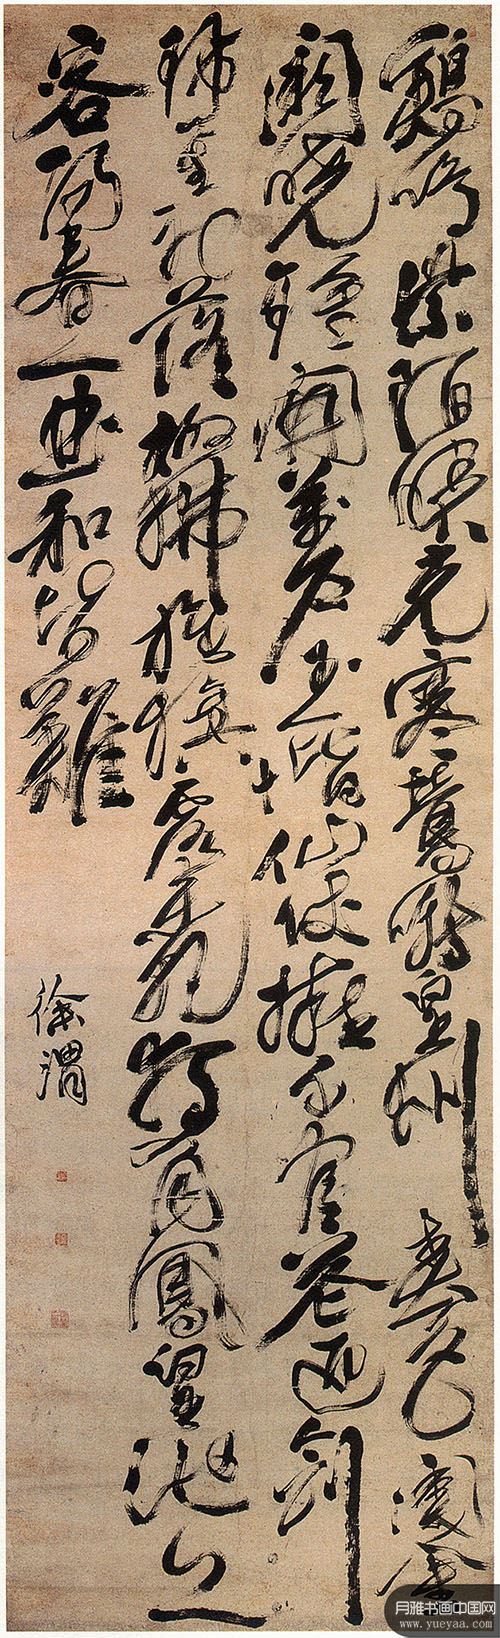 鷄鳴紫陌曙光寒鶯囀皇州春色闌金
闕曉鐘開萬戶玉階仙仗擁千官花迎劍
珮星初落柳拂旌旗露未乾獨有鳳皇池上
客陽春一曲和皆難
徐渭
月雅书画中国网
www.yueyaa.com